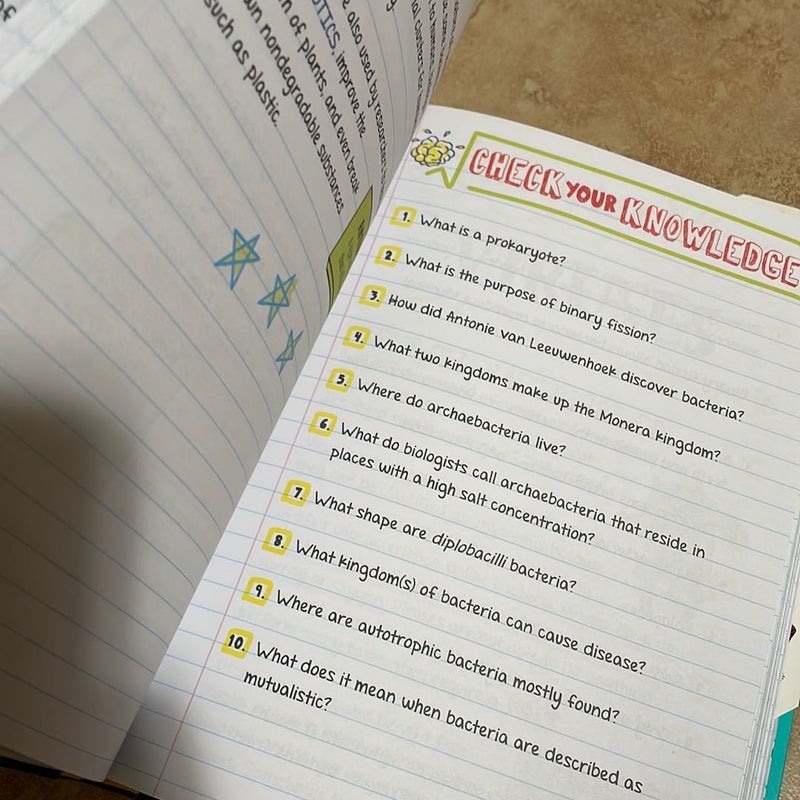 also used by researchers
OTICS, improve the
of plants, and even break
nondegradable substances
such as plastic.
CHECK YOUR KNOWLEDGE
1. What is a prokaryote?
2. What is the purpose of binary fission?
3. How did Antonie van Leeuwenhoek discover bacteria?
4. What two kingdoms make up the Monera kingdom?
5. Where do archaebacteria live?
6. What do biologists call archaebacteria that reside in
places with a high salt concentration?
7. What shape are diplobacilli bacteria?
8. What kingdom(s) of bacteria can cause disease?
9. Where are autotrophic bacteria mostly found?
10. What does it mean when bacteria are described as
mutualistic?